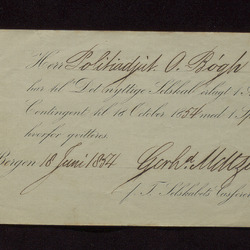 Herr Politiadjt. O. Bøgh
har til "Det nyttige Selskab" erlagt 1 A
Contingent til 16 October 1854 med 1 Sp
hvorfor qvitteres
Bergen 18 Juni 1854
Gerh. Meltze
f. T. Selskabets Casserer